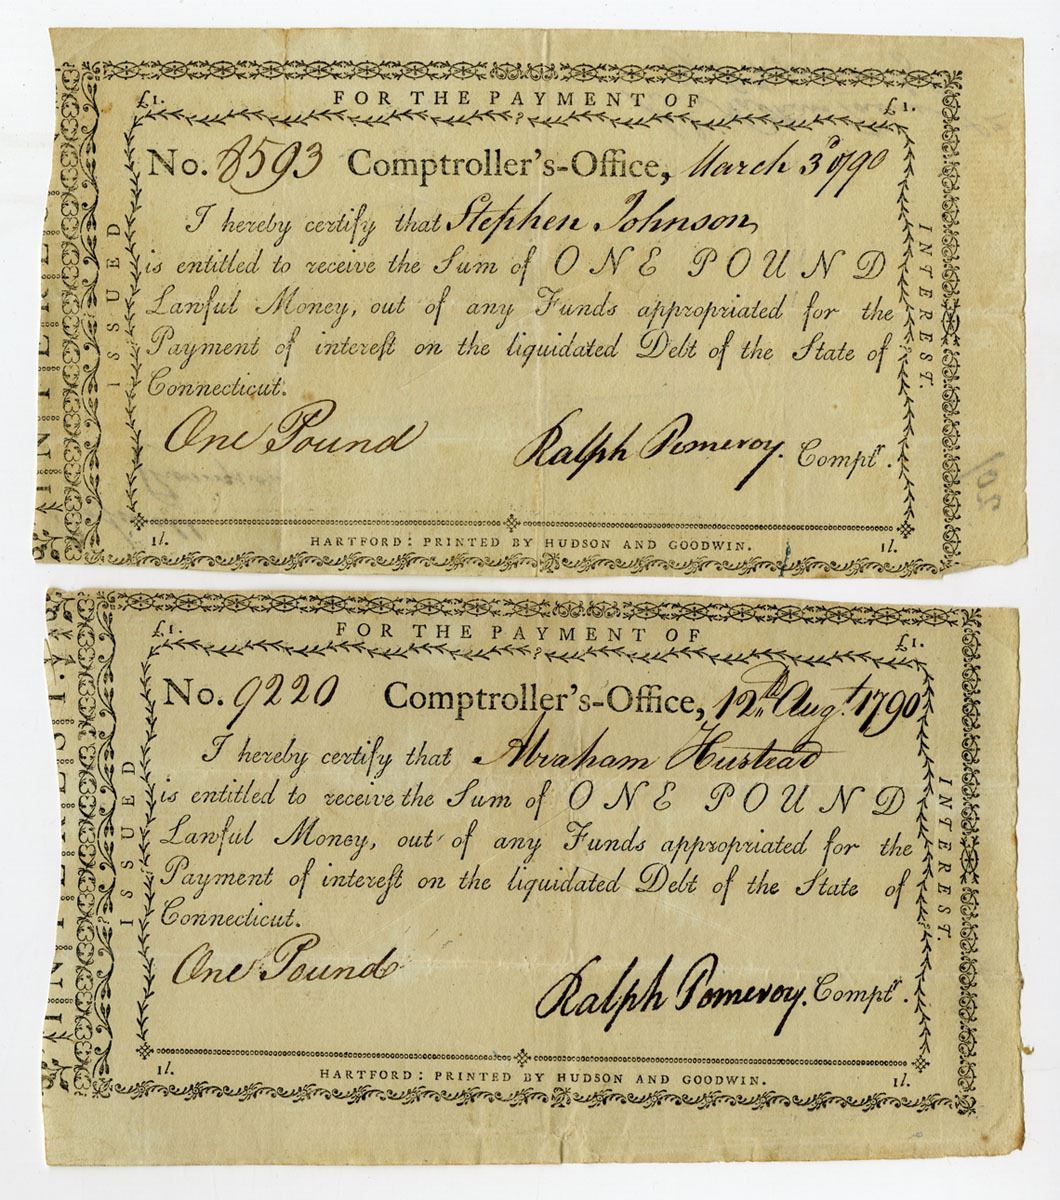 £1. FOR THE PAYMENT OF £1.
No. 8593 Comptroller's-Office, March 3d 1790
I hereby certify that Stephen Johnson
is entitled to receive the Sum of ONE POUND
Lawful Money, out of any Funds appropriated for the
Payment of intereſt on the liquidated Debt of the State of
Connecticut.
One Pound Ralph Pomeroy. Comptr.
1l. HARTFORD: PRINTED BY HUDSON AND GOODWIN. 1l.
ISSUED
INTEREST.
£1. FOR THE PAYMENT OF £1.
No. 9220 Comptroller's-Office, 12th Augt. 1790
I hereby certify that Abraham Hustead
is entitled to receive the Sum of ONE POUND
Lawful Money, out of any Funds appropriated for the
Payment of intereſt on the liquidated Debt of the State of
Connecticut.
One Pound Ralph Pomeroy. Comptr.
1l. HARTFORD: PRINTED BY HUDSON AND GOODWIN. 1l.
ISSUED
INTEREST.